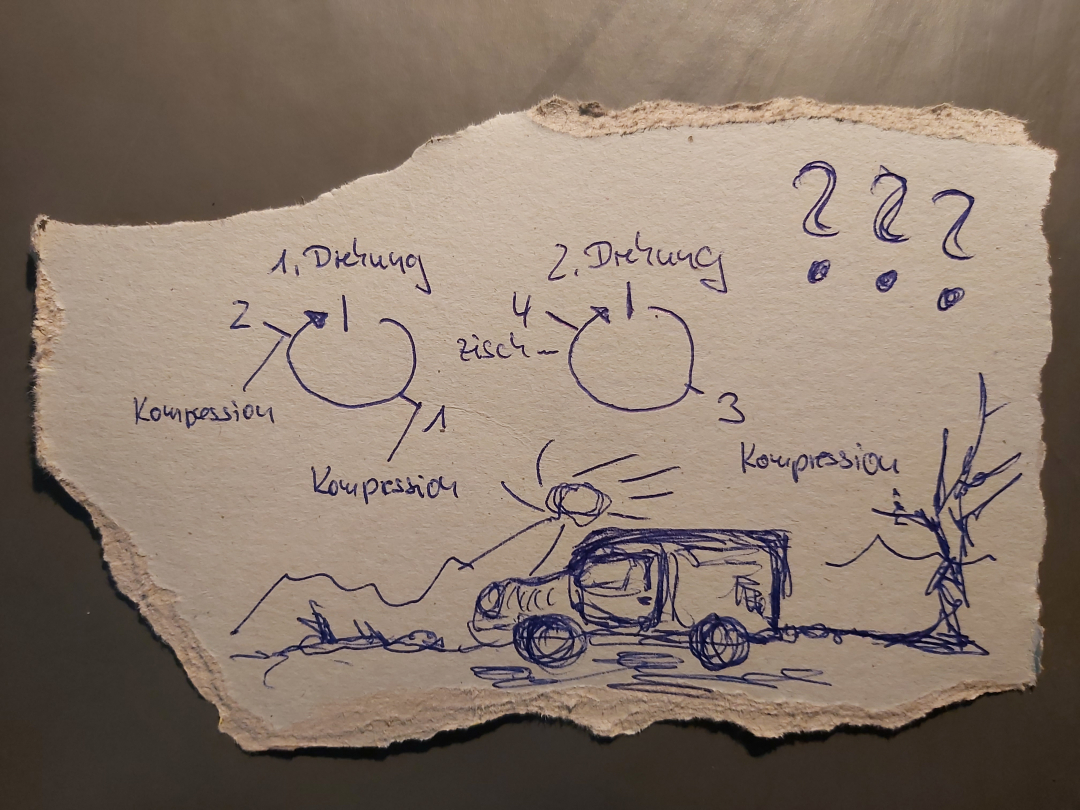 ???
1. Drehung
2. Drehung
2
4
zisch
Kompression
1
3
Kompression
Kompression